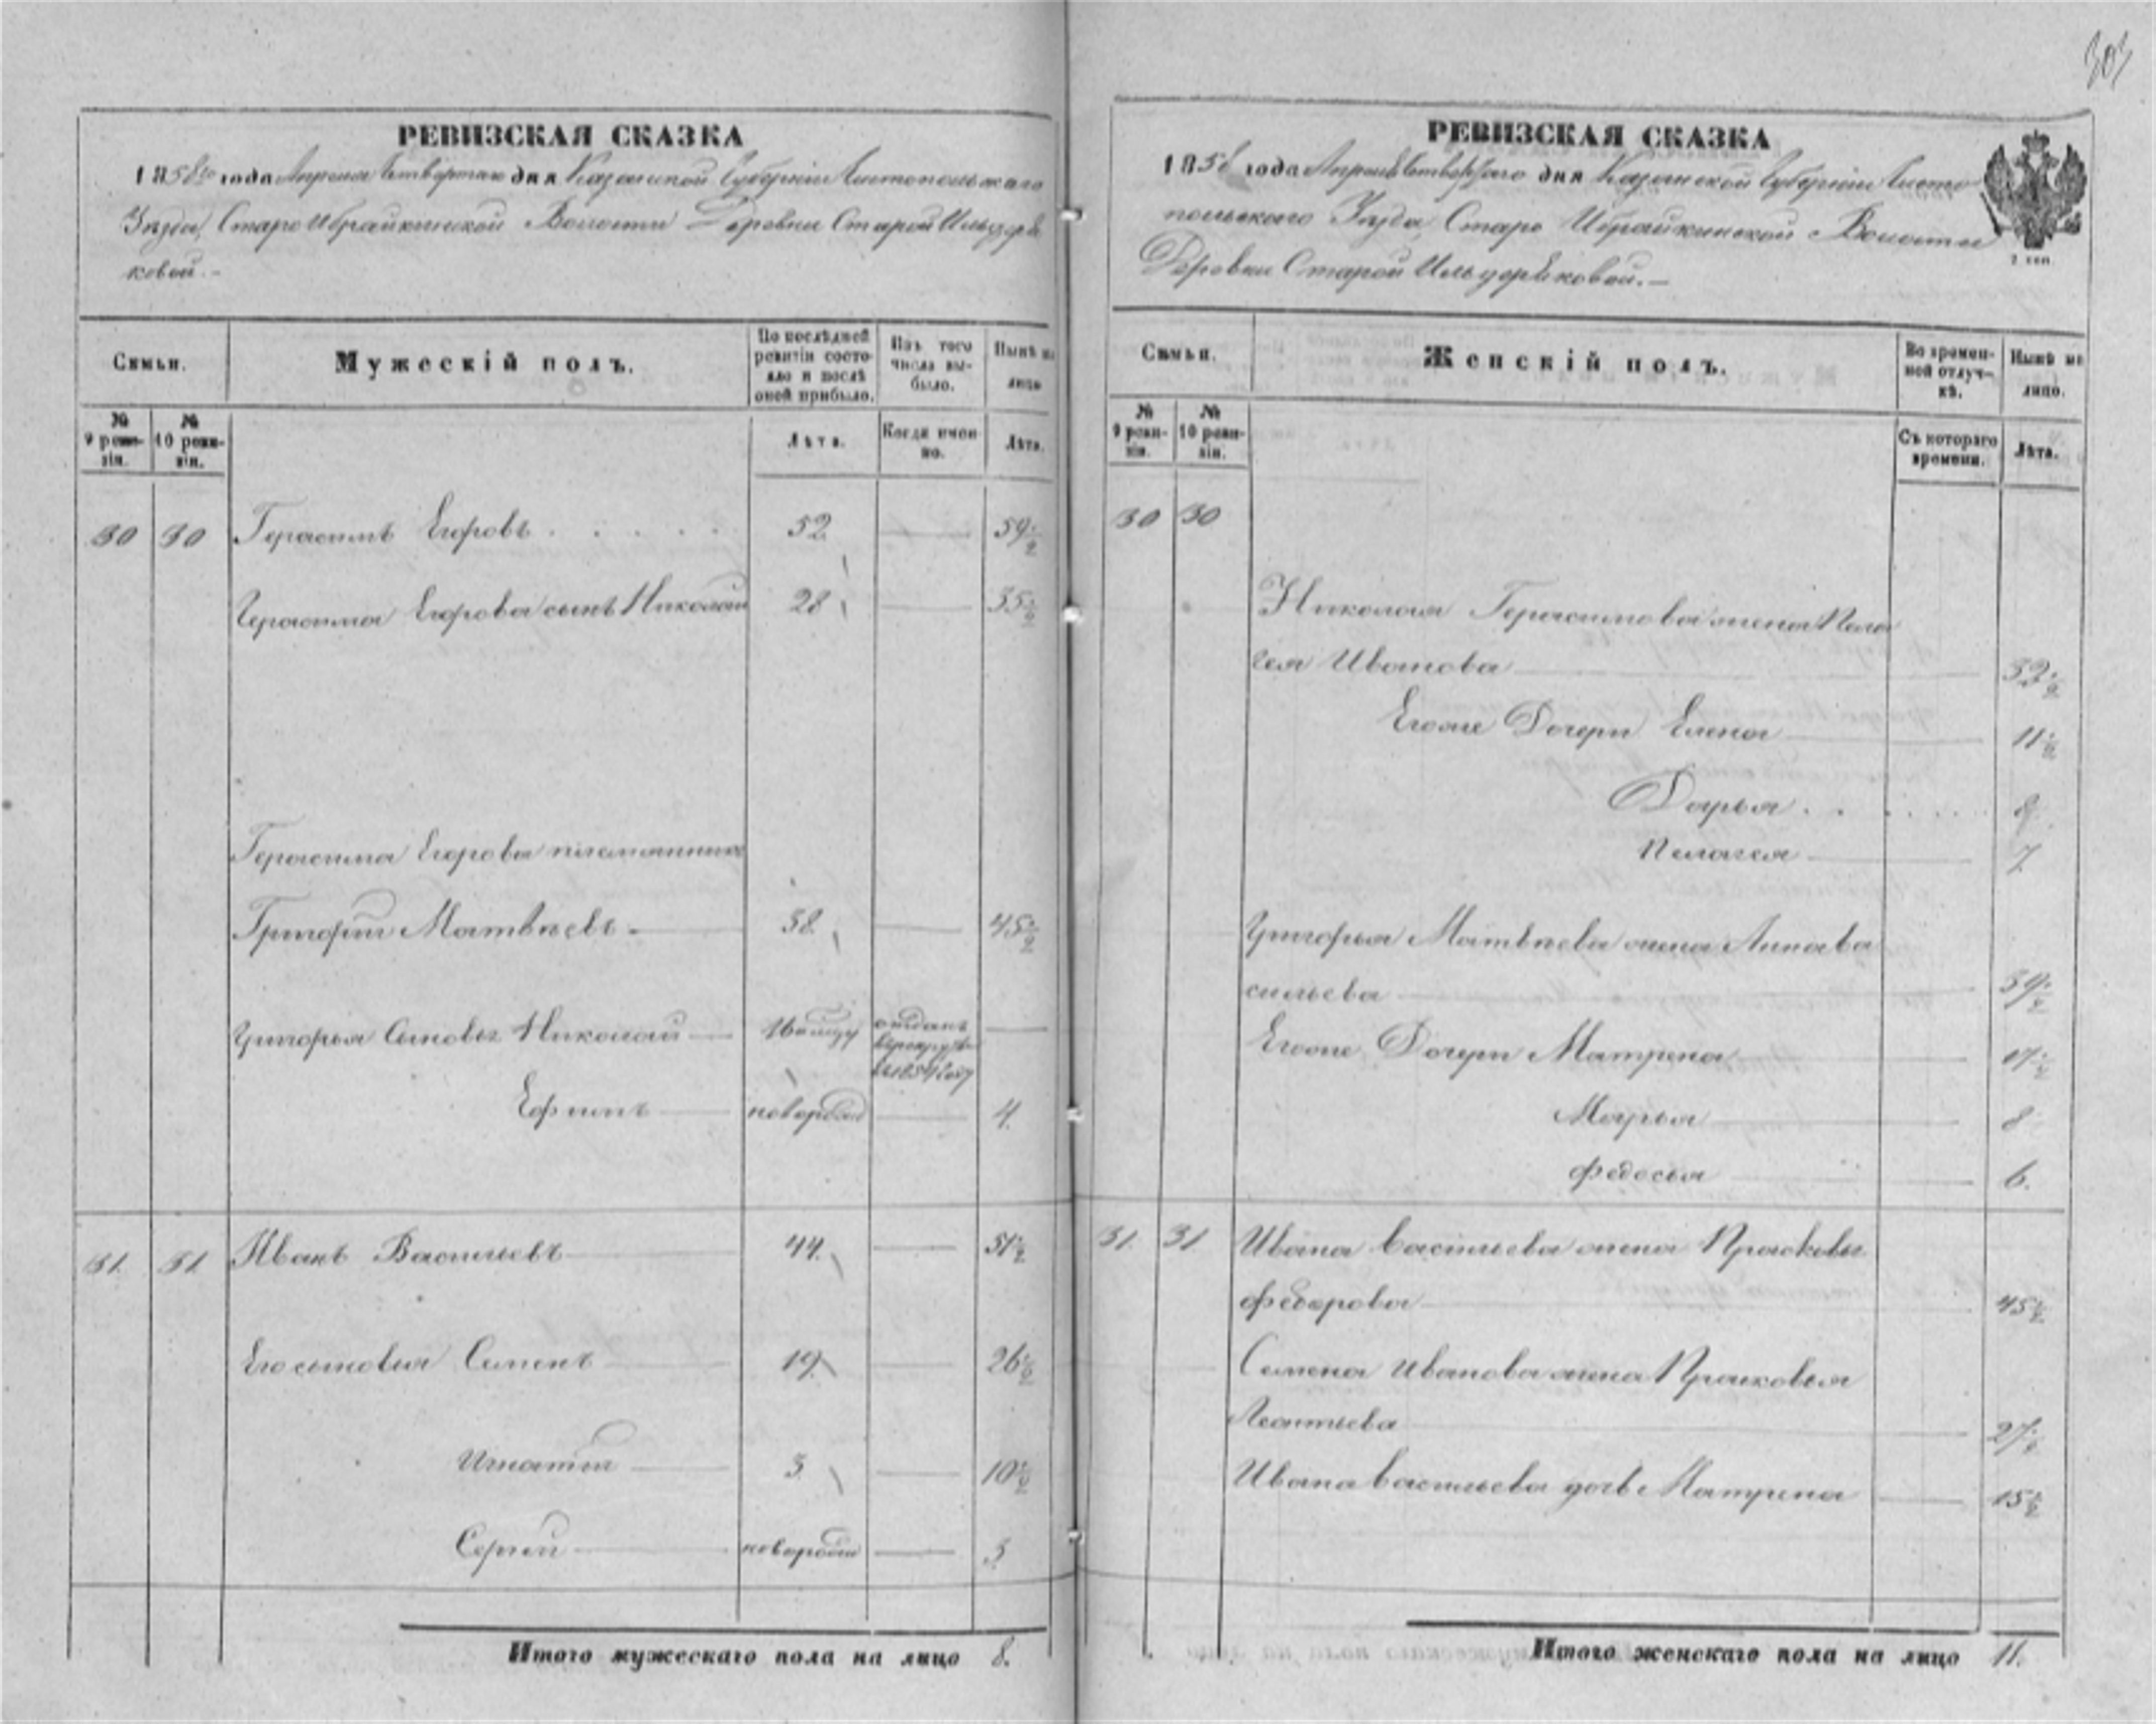 303
РЕВИЗСКАЯ СКАЗКА
1858го года Апреля Четвертаго дня Казанской Губерніи Чистопольскаго
Уезда, Старо Ибрайкинской Волости Деревни Старой Ильдеря
ковой.-
Симьи.
Мужескій полъ.
По послѣдней ревизіи состояло и послѣ оной прибыло.
Изъ того числа выбыло.
Нынѣ на лицо
№ 9 ревизіи.
№ 10 ревизіи.
Лѣта.
Когда именно.
Лѣта.
30 30 Герасимъ Егоровъ . . . . . 52. — 59 ½
Герасима Егорова сынъ Николай 28 — 35 ½
Герасима Егорова племянникъ
Григорий Матвѣевъ — 38. — 45 ½
Григорья Сыновья Николай — 16 отданъ —
Ефимъ — новорож — 4.
31. 31. Иванъ Васильевъ 44. — 51 ½
Его сыновья Семенъ — 19. — 26 ½
Игнатий — 3. — 10 ½
Сергей — новорож — 3.
Итого мужескаго пола на лицо 8.
РЕВИЗСКАЯ СКАЗКА
1858 года Апреля Четвертаго дня Казанской Губерніи Чисто
польскаго Уезда, Старо Ибрайкинской Волости
Деревни Старой Ильдеряковой.—
2 коп.
Симьи.
Женскій полъ.
Во временной отлучкѣ.
Нынѣ на лицо.
№ 9 ревизіи.
№ 10 ревизіи.
Съ котораго времени.
Лѣта.
30 30
Николая Герасимова жена Пела
гея Иванова — 32 ½
Егоже Дочери Елена — 11 ½
Дарья . . . . . 8.
Пелагея — 7.
Григорья Матвѣева жена Анна Ва
сильева — 39 ½
Егоже Дочери Матрена — 17 ½
Марья — 8
Федосья — 6.
31. 31 Ивана Васильева жена Прасковья
Федорова — 45 ½
Семена Иванова жена Прасковья
Леонтьева — 27 ½
Ивана Васильева дочь Матрена — 15 ½
Итого женскаго пола на лицо 11.